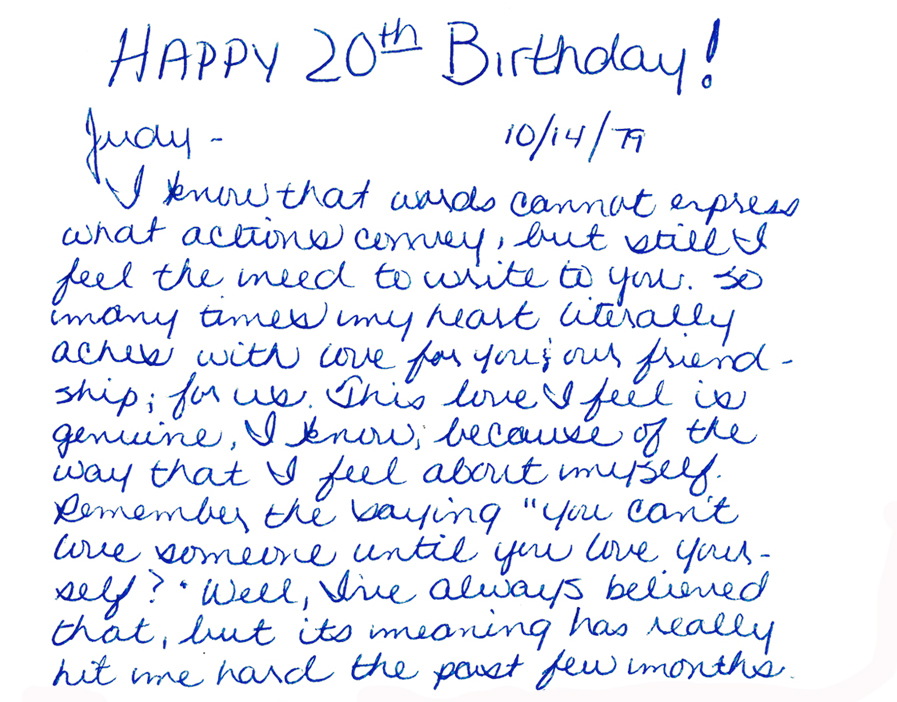 HAPPY 20th Birthday!
Judy - 10/14/79
I know that words cannot express
what actions convey, but still I
feel the need to write to you. So
many times my heart literally
aches with love for you; our friend-
ship; for us. This love I feel is
genuine, I know, because of the
way that I feel about myself.
Remember the saying "you can't
love someone until you love your-
self?" Well, I've always believed
that, but its meaning has really
hit me hard the past few months.